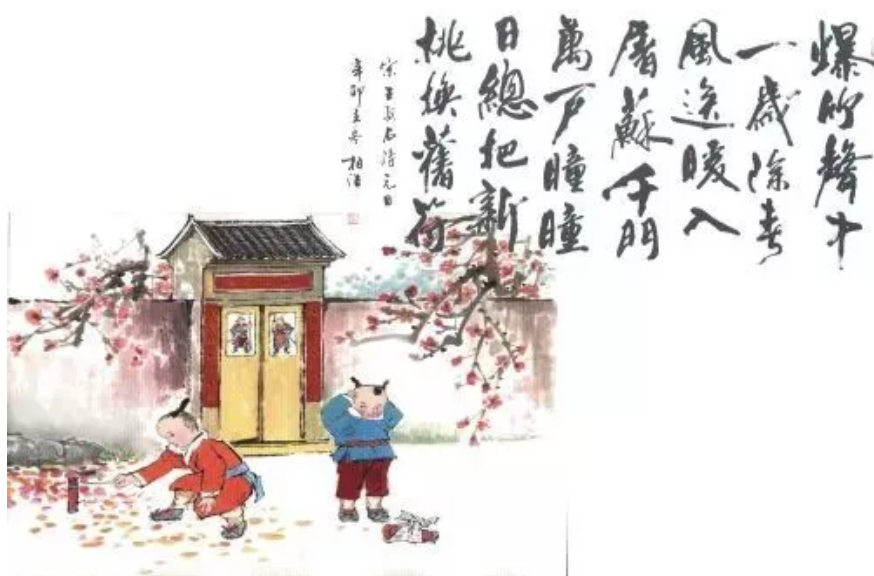 爆竹聲中
一歲除春
風送暖入
屠蘇千門
萬戶曈曈
日總把新
桃換舊符
宋王安石詩元日
辛卯立冬